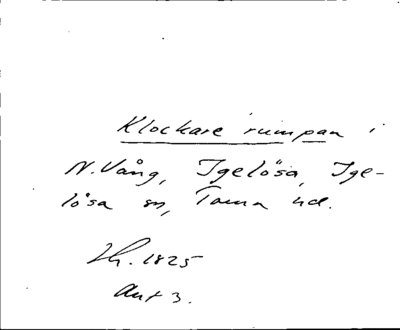 Klockare rumpan i
N. Vång, Igelösa, Ige-
lösa sn, Torna hd.
Lh. 1825
Akt 3.